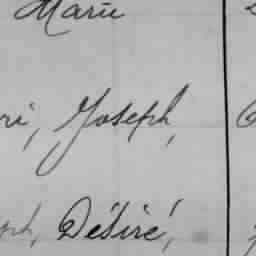 Marie
ri, Joseph,
ph, Désiré,